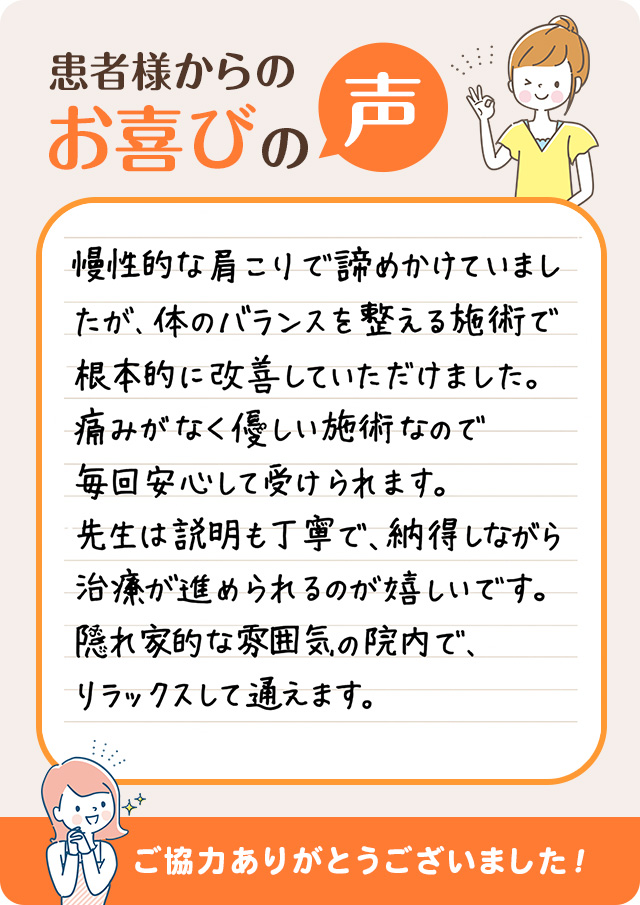 患者様からの
お喜びの声
慢性的な肩こりで諦めかけていまし
たが、体のバランスを整える施術で
根本的に改善していただけました。
痛みがなく優しい施術なので
毎回安心して受けられます。
先生は説明も丁寧で、納得しながら
治療が進められるのが嬉しいです。
隠れ家的な雰囲気の院内で、
リラックスして通えます。
ご協力ありがとうございました!